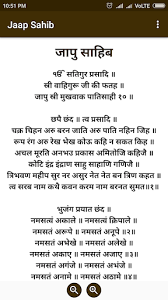 10:51 PM
Jaap Sahib
जापु साहिब
ੴ सतिगुर प्रसादि ॥
स्री वाहिगुरू जी की फतह ॥
जापु स्री मुखवाक पातिसाही १० ॥
छपै छंद ॥ त्व प्रसादि ॥
चक्र चिहन अरु बरन जाति अरु पाति नहिन जिह ॥
रूप रंग अरु रेख भेख कोऊ कहि न सकत किह ॥
अचल मूरति अनभउ प्रकास अमितोजि कहिजै ॥
कोटि इंद्र इंद्राण साहु साहाणि गणिजै ॥
त्रिभवण महीप सुर नर असुर नेत नेत बन त्रिण कहत ॥
त्व सरब नाम कथै कवन करम नाम बरनत सुमति ॥
भुजंग प्रयात छंद ॥
नमसत्वं अकाले ॥ नमसत्वं क्रिपाले ॥
नमसतं अरूपे ॥ नमसतं अनूपे ॥२॥
नमसतं अभेखे ॥ नमसतं अलेखे ॥
नमसतं अकाए ॥ नमसतं अजाए ॥३॥
नमसतं अगंजे ॥ नमसतं अभंजे ॥
नमसतं अनामे ॥ नमसतं अठामे ॥४॥